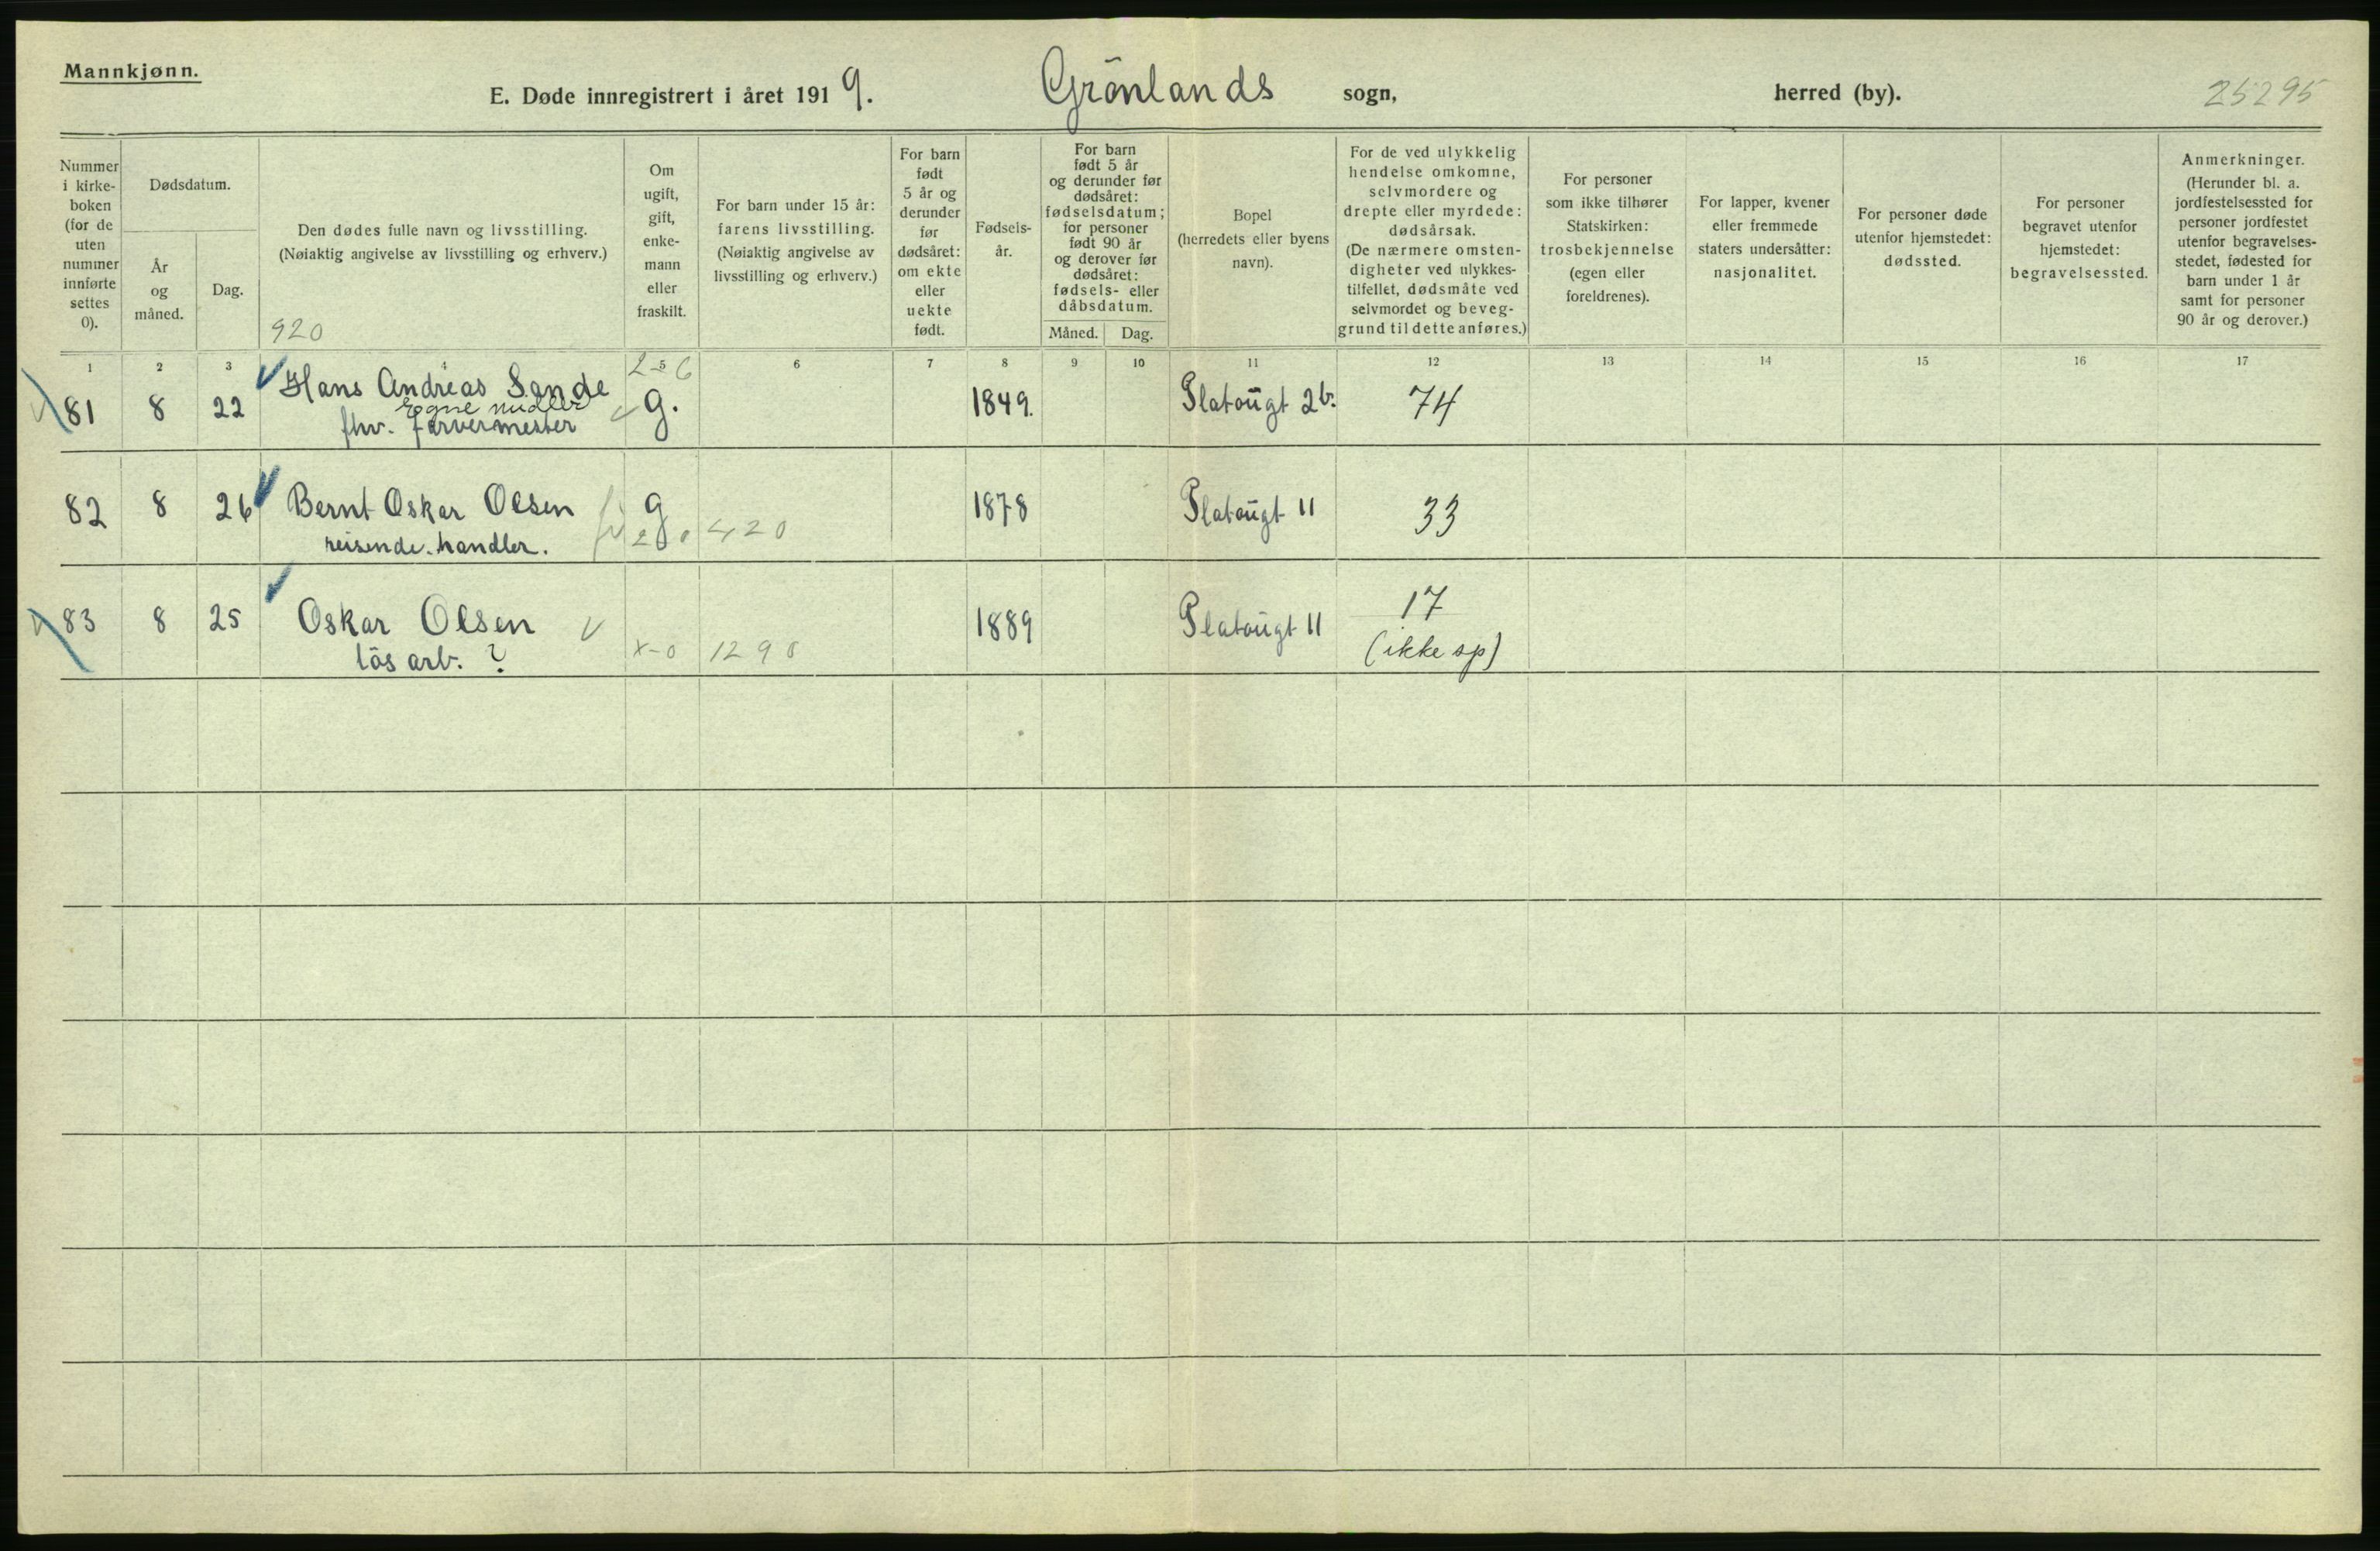 Mannkjønn.
E. Døde innregistrert i året 1919. Grönlands sogn, herred (by). 25295
Nummer i kirkeboken (for de uten nummer innførte settes 0).
Dødsdatum.
År og måned.
Dag.
Den dødes fulle navn og livsstilling.
(Nøiaktig angivelse av livsstilling og erhverv.)
920
Om ugift, gift, enkemann eller fraskilt.
For barn under 15 år: farens livsstilling.
(Nøiaktig angivelse av livsstilling og erhverv.)
For barn født 5 år og derunder før dødsåret: om ekte eller uekte født.
Fødselsår.
For barn født 5 år og derunder før dødsåret: fødselsdatum; for personer født 90 år og derover før dødsåret: fødsels- eller dåbsdatum.
Måned. Dag.
Bopel
(herredets eller byens navn).
For de ved ulykkelig hendelse omkomne, selvmordere og drepte eller myrdede: dødsårsak.
(De nærmere omstendigheter ved ulykkestilfellet, dødsmåte ved selvmordet og beveggrund til dette anføres.)
For personer som ikke tilhører Statskirken: trosbekjennelse (egen eller foreldrenes).
For lapper, kvener eller fremmede staters undersåtter: nasjonalitet.
For personer døde utenfor hjemstedet: dødssted.
For personer begravet utenfor hjemstedet: begravelsessted.
Anmerkninger.
(Herunder bl. a. jordfestelsessted for personer jordfestet utenfor begravelsesstedet, fødested for barn under 1 år samt for personer 90 år og derover.)
1 2 3 4 5 6 7 8 9 10 11 12 13 14 15 16 17
2-6
81 8 22 Hans Andreas Sande g. 1849. Platougt 2b. 74
Egne midler
fhv. farvermester
82 8 26 Bernt Oskar Olsen g 1878 Platougt 11 33
reisende handler. 420
83 8 25 Oskar Olsen 1889 Platougt 11 17
lös arb. ? x-0 1290 (ikke sp)